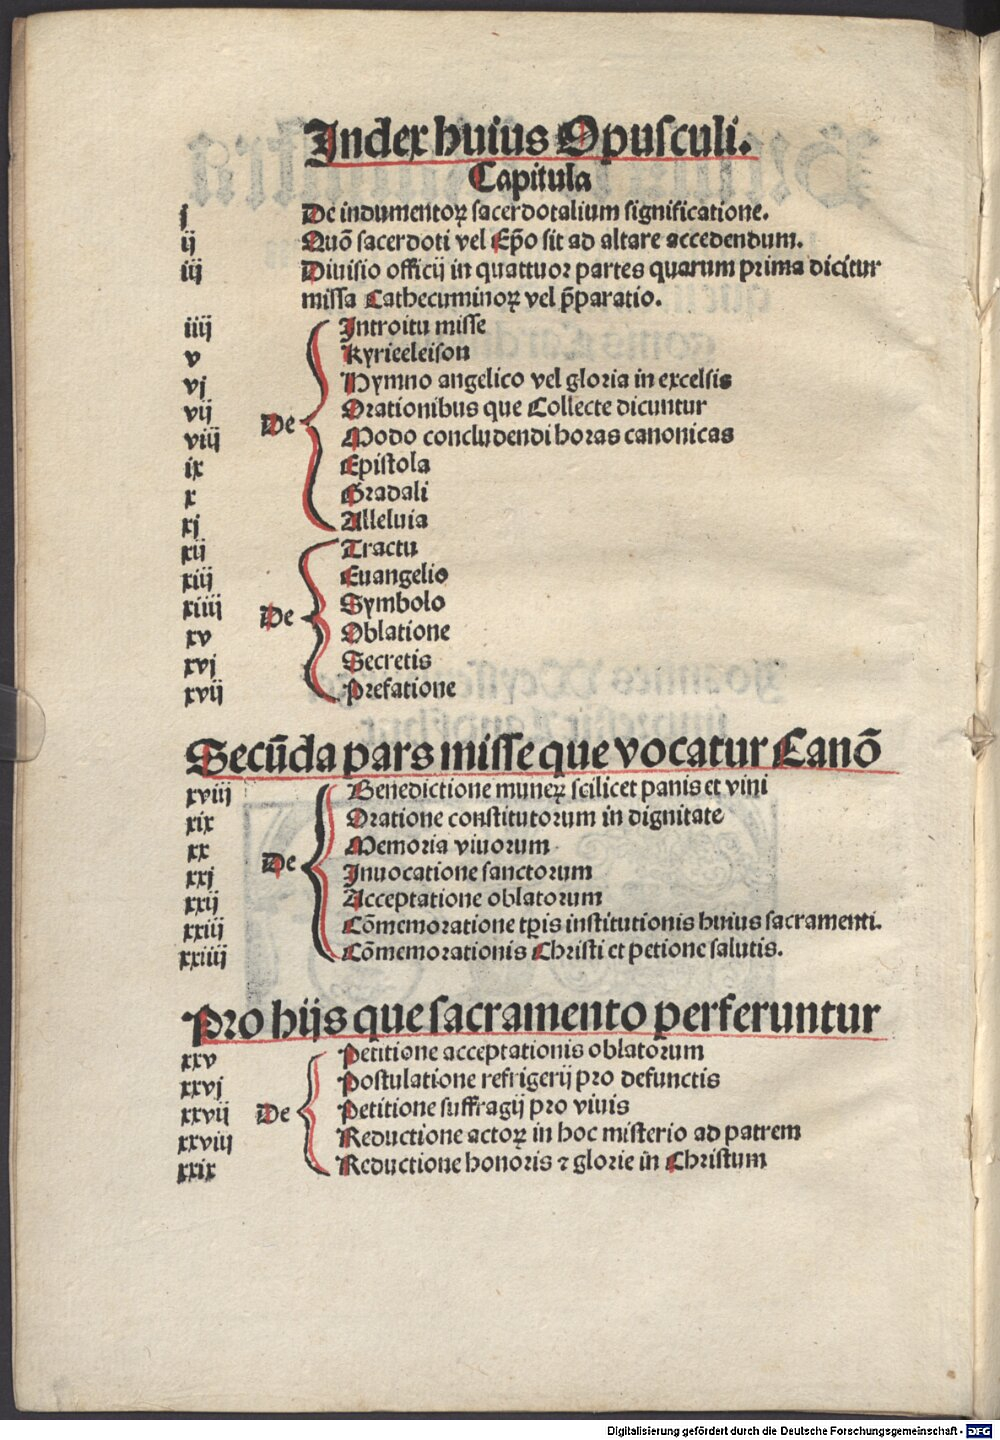 Index huius Opusculi.
Capitula
j De indumentoꝝ sacerdotalium significatione.
ij Quō sacerdoti vel Ep̄o sit ad altare accedendum.
iij Diuisio officij in quattuor partes quarum prima dicitur
missa Cathecuminoꝝ vel p̄paratio.
iiij Introitu misse
v Kyrieeleison
vj Hymno angelico vel gloria in excelsis
vij Orationibus que Collecte dicuntur
De
viij Modo concludendi horas canonicas
ix Epistola
x Gradali
xj Alleluia
xij Tractu
xiij Euangelio
xiiij Symbolo
De
xv Oblatione
xvj Secretis
xvij Prefatione
Secūda pars misse que vocatur Canō
xviij Benedictione muneꝝ scilicet panis et vini
xix Oratione constitutorum in dignitate
xx Memoria viuorum
De
xxj Inuocatione sanctorum
xxij Acceptatione oblatorum
xxiij Cōmemoratione tp̄is institutionis huius sacramenti.
xxiiij Cōmemorationis Christi et petione salutis.
Pro hijs que sacramento perferuntur
xxv Petitione acceptationis oblatorum
xxvj Postulatione refrigerij pro defunctis
xxvij De Petitione suffragij pro viuis
xxviij Reductione actoꝝ in hoc misterio ad patrem
xxix Reductione honoris ⁊ glorie in Christum
Digitalisierung gefördert durch die Deutsche Forschungsgemeinschaft - DFG